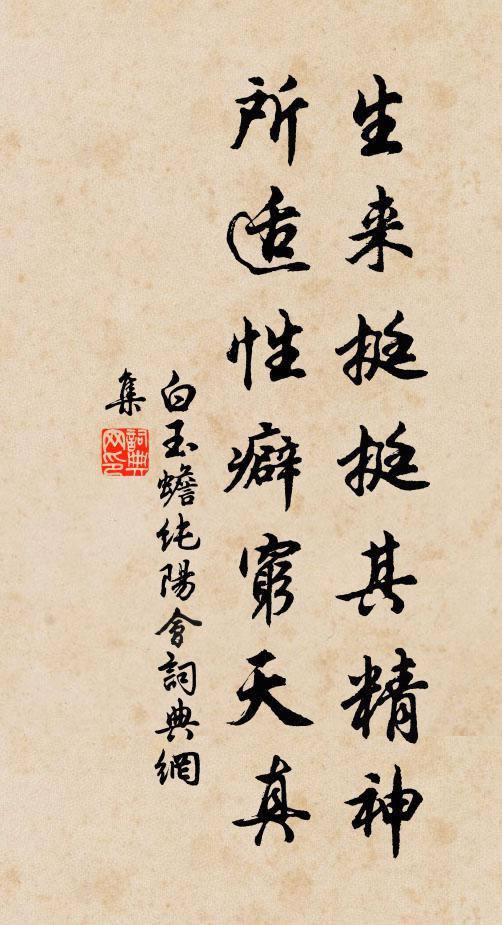 生来挺挺其精神
所适性癖穷天真
白玉蟾纯陽會詞典網
集
詞典网印